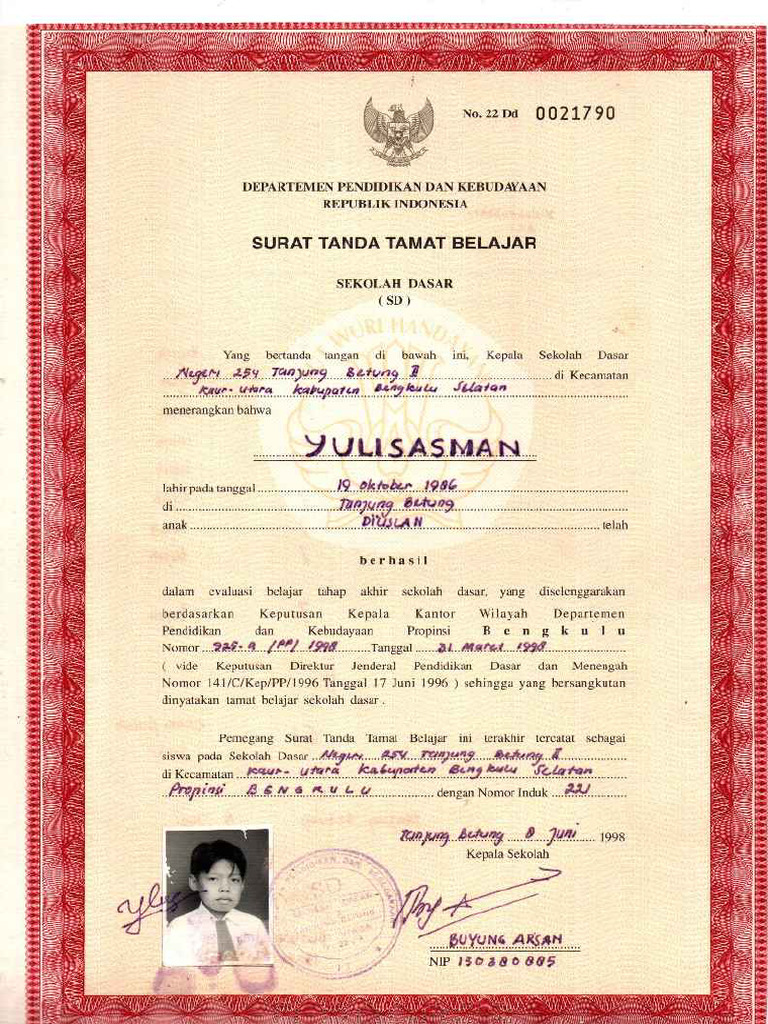 No. 22 Dd 0021790
DEPARTEMEN PENDIDIKAN DAN KEBUDAYAAN
REPUBLIK INDONESIA
SURAT TANDA TAMAT BELAJAR
SEKOLAH DASAR
( SD )
WURI HANDAYA
Yang bertanda tangan di bawah ini, Kepala Sekolah Dasar
Negeri 254 Tanjung Betung II di Kecamatan
Kaur - Utara Kabupaten Bengkulu Selatan
menerangkan bahwa
YULISASMAN
lahir pada tanggal 19 Oktober 1986
di Tanjung Betung
anak DIUSLAN telah
berhasil
dalam evaluasi belajar tahap akhir sekolah dasar, yang diselenggarakan
berdasarkan Keputusan Kepala Kantor Wilayah Departemen
Pendidikan dan Kebudayaan Propinsi Bengkulu
Nomor /PP/ 1998 Tanggal 31 Maret 1998
( vide Keputusan Direktur Jenderal Pendidikan Dasar dan Menengah
Nomor 141/C/Kep/PP/1996 Tanggal 17 Juni 1996 ) sehingga yang bersangkutan
dinyatakan tamat belajar sekolah dasar .
Pemegang Surat Tanda Tamat Belajar ini terakhir tercatat sebagai
siswa pada Sekolah Dasar Negeri 254 Tanjung Betung II
di Kecamatan Kaur - Utara Kabupaten Bengkulu Selatan
Propinsi BENGKULU dengan Nomor Induk 221
Tanjung Betung 8 Juni 1998
Kepala Sekolah
BUYUNG ARSAN
NIP 130380885